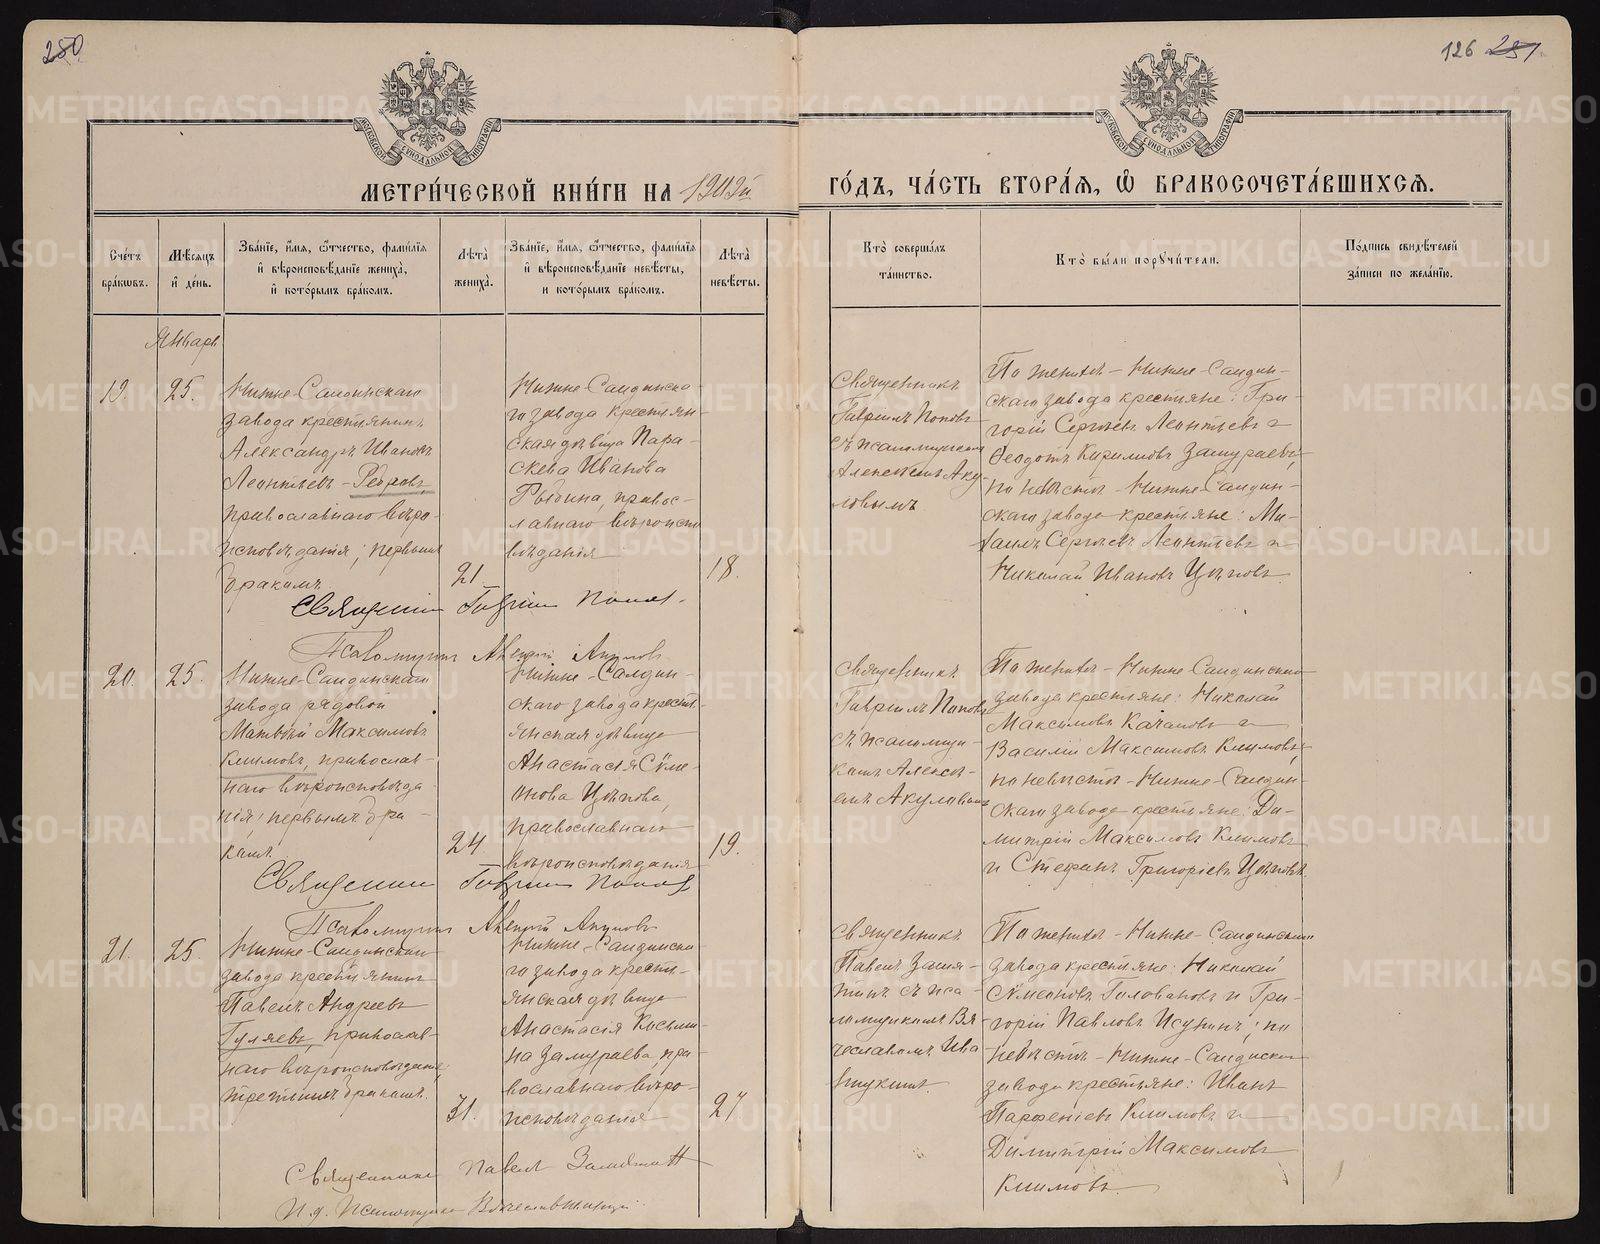 280.
126 251
МЕТРИ́ЧЕСКОЙ КНИ́ГИ НА 1902й
ГО́ДЪ, ЧА́СТЬ ВТОРА́Я, Ѿ БРАКОСОЧЕТА́ВШИХСЯ.
МОСКОВСКОЙ СѴНОДАЛЬНОЙ ТИПОГРАФІИ
МОСКОВСКОЙ СѴНОДАЛЬНОЙ ТИПОГРАФІИ
Сче́тъ
бра́ковъ.
Мѣ́сяцъ
и҆ де́нь.
Зва́нїе, и҆́мя, ѻ҆́тчество, фами́лїя
и҆ вѣроисповѣ́данїе жениха̀,
и҆ кото́рымъ бра́комъ.
Лѣ́та
жениха̀.
Зва́нїе, и҆́мя, ѻ҆́тчество, фами́лїя
и҆ вѣроисповѣ́данїе невѣ́сты,
и кото́рымъ бра́комъ.
Лѣ́та
невѣ́сты.
Кто̀ соверша́лъ
та́инство.
Кто̀ бы́ли порꙋчи́тели.
По́дпись свидѣ́телей
за́писи по жела́нїю.
Январь
19.
25.
Нижне-Салдинскаго
завода крестьянинъ
Александръ Ивановъ
Леонтьевъ-Ребровъ,
православнаго вѣро-
исповѣданія; первымъ
бракомъ
21.
Нижне-Салдинска-
го завода крестьян-
ская дѣвица Пара-
скева Иванова
Рыбина, правос-
лавнаго вѣроиспо
вѣданія
18.
Священникъ
Гавріилъ Поповъ
съ псаломщикомъ
Алексѣемъ Аку-
ловымъ
По женихѣ - Нижне-Салдин-
скаго завода крестьяне: Гри-
горій Сергѣевъ Леонтьевъ и
Ѳеодотъ Кириловъ Замураевъ;
по невѣстѣ - Нижне-Салдин-
скаго завода крестьяне: Ми-
хаилъ Сергѣевъ Леонтьевъ и
Николай Ивановъ Цѣповъ.
Священникъ Гавріилъ Поповъ.
Псаломщикъ Алексѣй Акуловъ
20.
25.
Нижне-Салдинскаго
завода рядовой
Матвѣй Максимовъ
Климовъ, православ-
наго вѣроисповѣда
нія; первымъ бра-
комъ.
24
Нижне-Салдин-
скаго завода кресть-
янская дѣвица
Анастасія Сѵме-
онова Цѣпова,
православнаго
вѣроисповѣданія
19.
Священникъ
Гавріилъ Поповъ
съ псаломщи-
комъ Алексѣ-
емъ Акуловымъ
По женихѣ - Нижне-Салдинскаго
завода крестьяне: Николай
Максимовъ Качановъ и
Василій Максимовъ Климовъ;
по невѣстѣ - Нижне-Салдин-
скаго завода крестьяне: Ди-
митрій Максимовъ Климовъ
и Стефанъ Григорьевъ Цѣповъ.
Священникъ Гавріилъ Поповъ
Псаломщикъ Алексѣй Акуловъ
21.
25.
Нижне-Салдинскаго
завода крестьянинъ
Павелъ Андреевъ
Гуляевъ, православ-
наго вѣроисповѣданія;
третьимъ бракомъ.
31.
Нижне-Салдинска
го завода кресть-
янская дѣвица
Анастасія Косьми-
на Замураева, пра-
вославнаго вѣро-
исповѣданія
27
Священникъ
Павелъ Замя-
тинъ съ пса-
ломщикомъ Вя
чеславомъ Ива
По женихѣ - Нижне-Салдинскаго
завода крестьяне: Николай
Сѵмеоновъ Головановъ и Гри-
горій Павловъ Исупинъ; по
невѣстѣ - Нижне-Салдинскаго
завода крестьяне: Иванъ
Парфеніевъ Климовъ и
Димитрій Максимовъ
Климовъ.
Священникъ Павелъ Замятинъ
И. д. Псаломщика Вячеславъ
METRIKI.GASO-URAL.RU